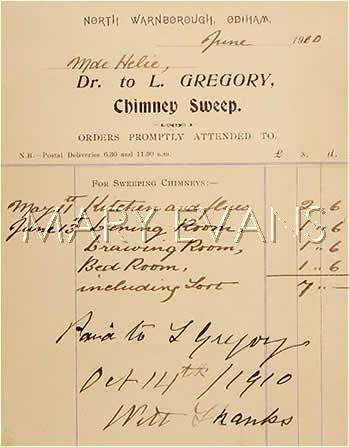 North Warnborough, Odiham,
June 1910
Mde Helie,
Dr. to L. GREGORY,
Chimney Sweep.
ORDERS PROMPTLY ATTENDED TO.
N.B.—Postal Deliveries 6.30 and 11.30 a.m. £ s. d.
For Sweeping Chimneys:—
May 11th Kitchen and flues 2 " 6
June 13th Dining Room, 1 " 6
Drawing Room, 1 " 6
Bed Room, 1 " 6
including Soot 7 "—
MARY EVANS
Paid to L Gregory
Oct 14th / 1910
With Thanks